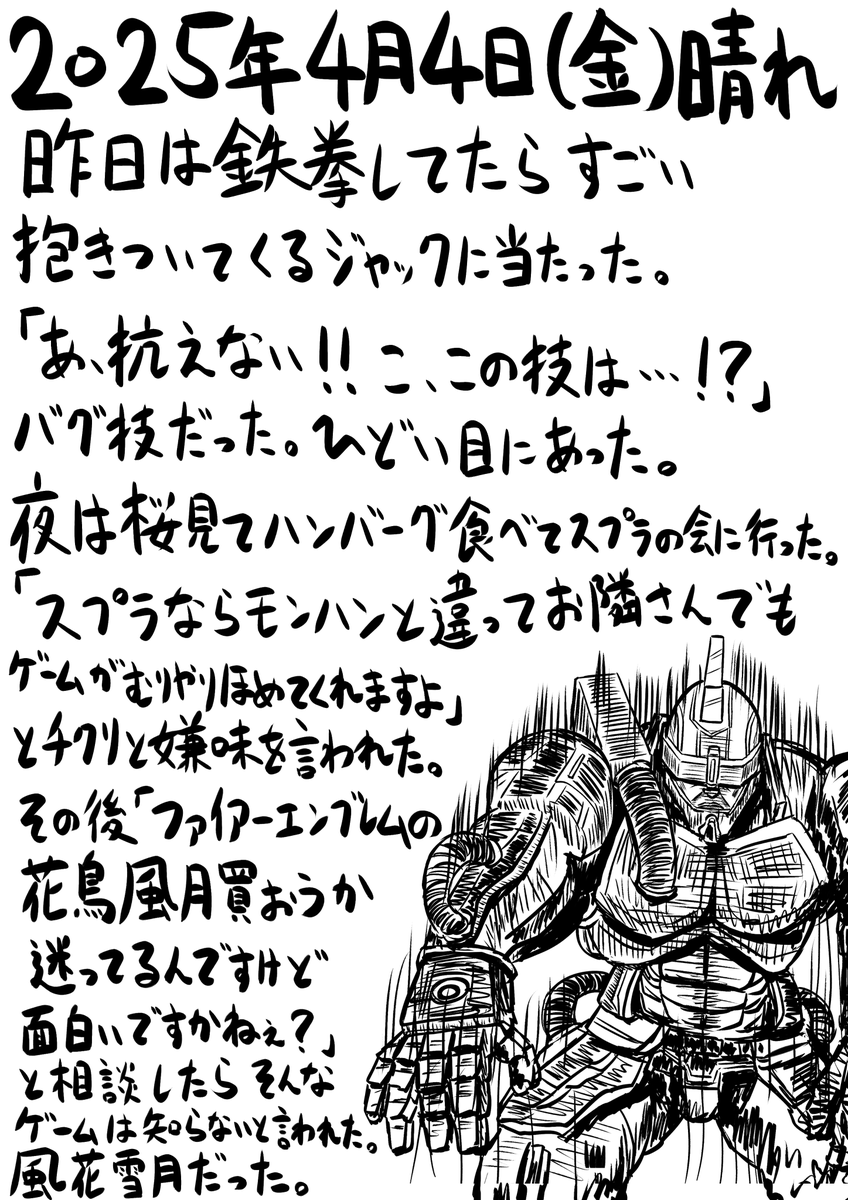 2025年4月4日(金)晴れ
昨日は鉄拳してたらすごい
抱きついてくるジャックに当たった。
「あ、抗えない!!こ、この技は…!?」
バグ技だった。ひどい目にあった。
夜は桜見てハンバーグ食べてスプラの会に行った。
「スプラならモンハンと違ってお隣さんでも
ゲームがむりやりほめてくれますよ」
とチクリと嫌味を言われた。
その後「ファイアーエンブレムの
花鳥風月買おうか
迷ってるんですけど
面白いですかねぇ?」
と相談したらそんな
ゲームは知らないと言われた。
風花雪月だった。